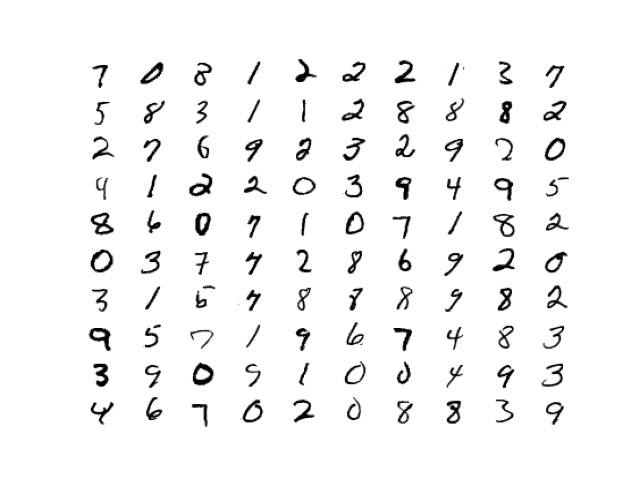 7 0 8 1 2 2 2 1 3 7
5 8 3 1 1 2 8 8 8 2
2 7 6 9 2 3 2 9 2 0
9 1 2 2 0 3 9 4 9 5
8 6 0 7 1 0 7 1 8 2
0 3 7 7 2 8 6 9 2 0
3 1 5 7 8 8 8 9 8 2
9 5 7 1 9 6 7 4 8 3
3 9 0 9 1 0 0 4 9 3
4 6 7 0 2 0 8 8 3 9